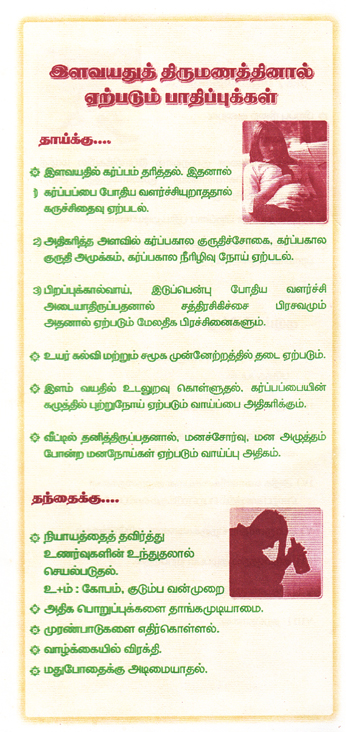 இளவயதுத் திருமணத்தினால்
ஏற்படும் பாதிப்புக்கள்
தாய்க்கு....
இளவயதில் கர்ப்பம் தரித்தல். இதனால்
1) கர்ப்பப்பை போதிய வளர்ச்சியுறாததால்
கருச்சிதைவு ஏற்படல்.
2) அதிகரித்த அளவில் கர்ப்பகால குருதிச்சோகை, கர்ப்பகால
குருதி அமுக்கம், கர்ப்பகால நீரிழிவு நோய் ஏற்படல்.
3) பிறப்புக்கால்வாய், இடுப்பென்பு போதிய வளர்ச்சி
அடையாதிருப்பதனால் சத்திரசிகிச்சை பிரசவமும்
அதனால் ஏற்படும் மேலதிக பிரச்சினைகளும்.
உயர் கல்வி மற்றும் சமூக முன்னேற்றத்தில் தடை ஏற்படும்.
இளம் வயதில் உடலுறவு கொள்ளுதல். கர்ப்பப்பையின்
கழுத்தில் புற்றுநோய் ஏற்படும் வாய்ப்பை அதிகரிக்கும்.
வீட்டில் தனித்திருப்பதனால், மனச்சோர்வு, மன அழுத்தம்
போன்ற மனநோய்கள் ஏற்படும் வாய்ப்பு அதிகம்.
தந்தைக்கு....
நியாயத்தைத் தவிர்த்து
உணர்வுகளின் உந்துதலால்
செயல்படுதல்.
உ+ம் : கோபம், குடும்ப வன்முறை
அதிக பொறுப்புக்களை தாங்கமுடியாமை.
முரண்பாடுகளை எதிர்கொள்ளல்.
வாழ்க்கையில் விரக்தி.
மதுபோதைக்கு அடிமையாதல்.